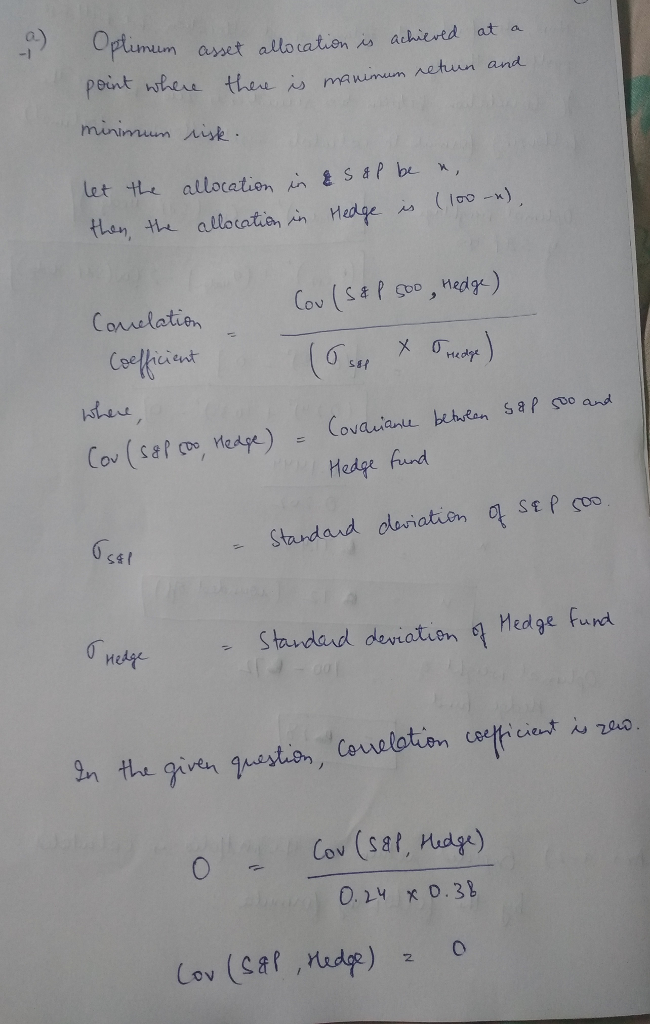 a)
-1
Optimum asset allocation is achieved at a
point where there is maximum return and
minimum risk.
let the allocation in S&P be x,
then, the allocation in Hedge is (100-x).
Correlation Coefficient = Cov (S&P 500, Hedge)
(σ S&P × σ Hedge)
where,
Cov (S&P 500, Hedge) = Covariance between S&P 500 and
Hedge Fund
σ S&P = Standard deviation of S&P 500.
σ Hedge = Standard deviation of Hedge Fund
In the given question, Correlation coefficient is zero.
0 = Cov (S&P, Hedge)
0.24 × 0.38
Cov (S&P, Hedge) = 0